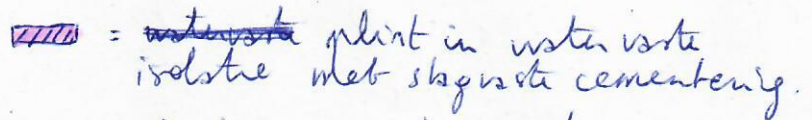 = watervaste plint in watervaste
isolatie met slagvaste cementering.